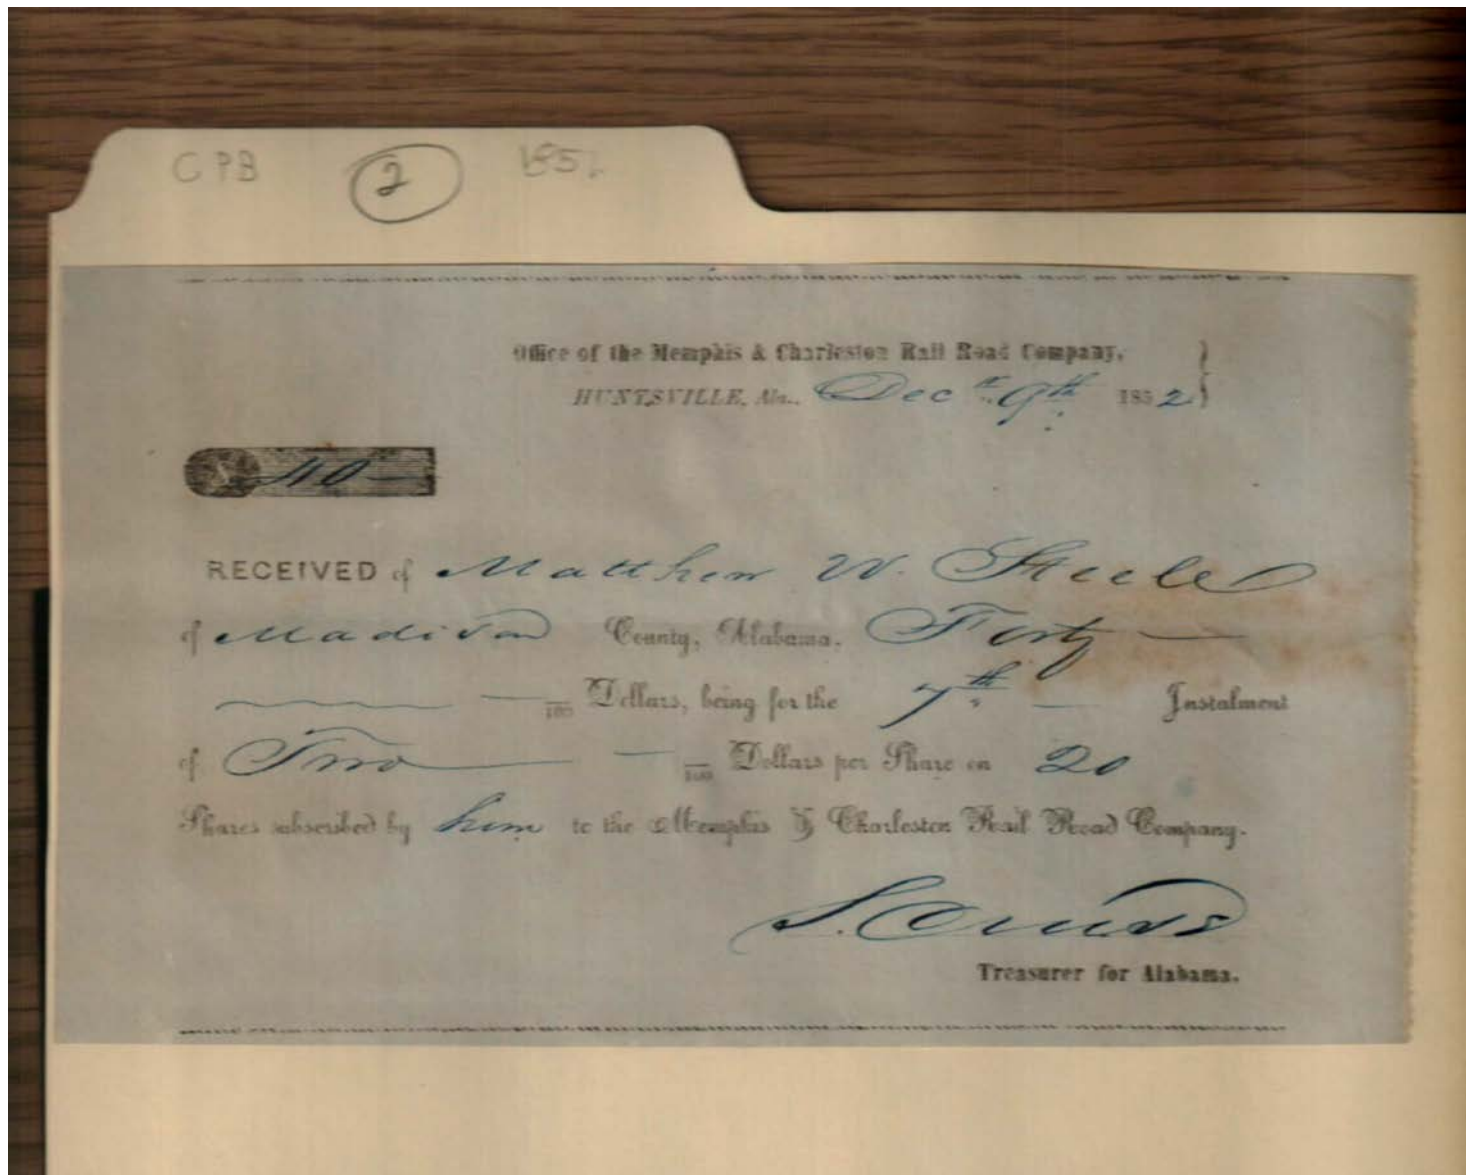 CPB 2 185
Office of the Memphis & Charleston Rail Road Company,
HUNTSVILLE, Ala., Decr 9th 1852
40
RECEIVED of Matthew W. Steele
of Madison County, Alabama. Forty
/100 Dollars, being for the 7th Instalment
of Two /100 Dollars per Share on 20
Shares subscribed by him to the Memphis & Charleston Rail Road Company.
S. Cruse
Treasurer for Alabama.